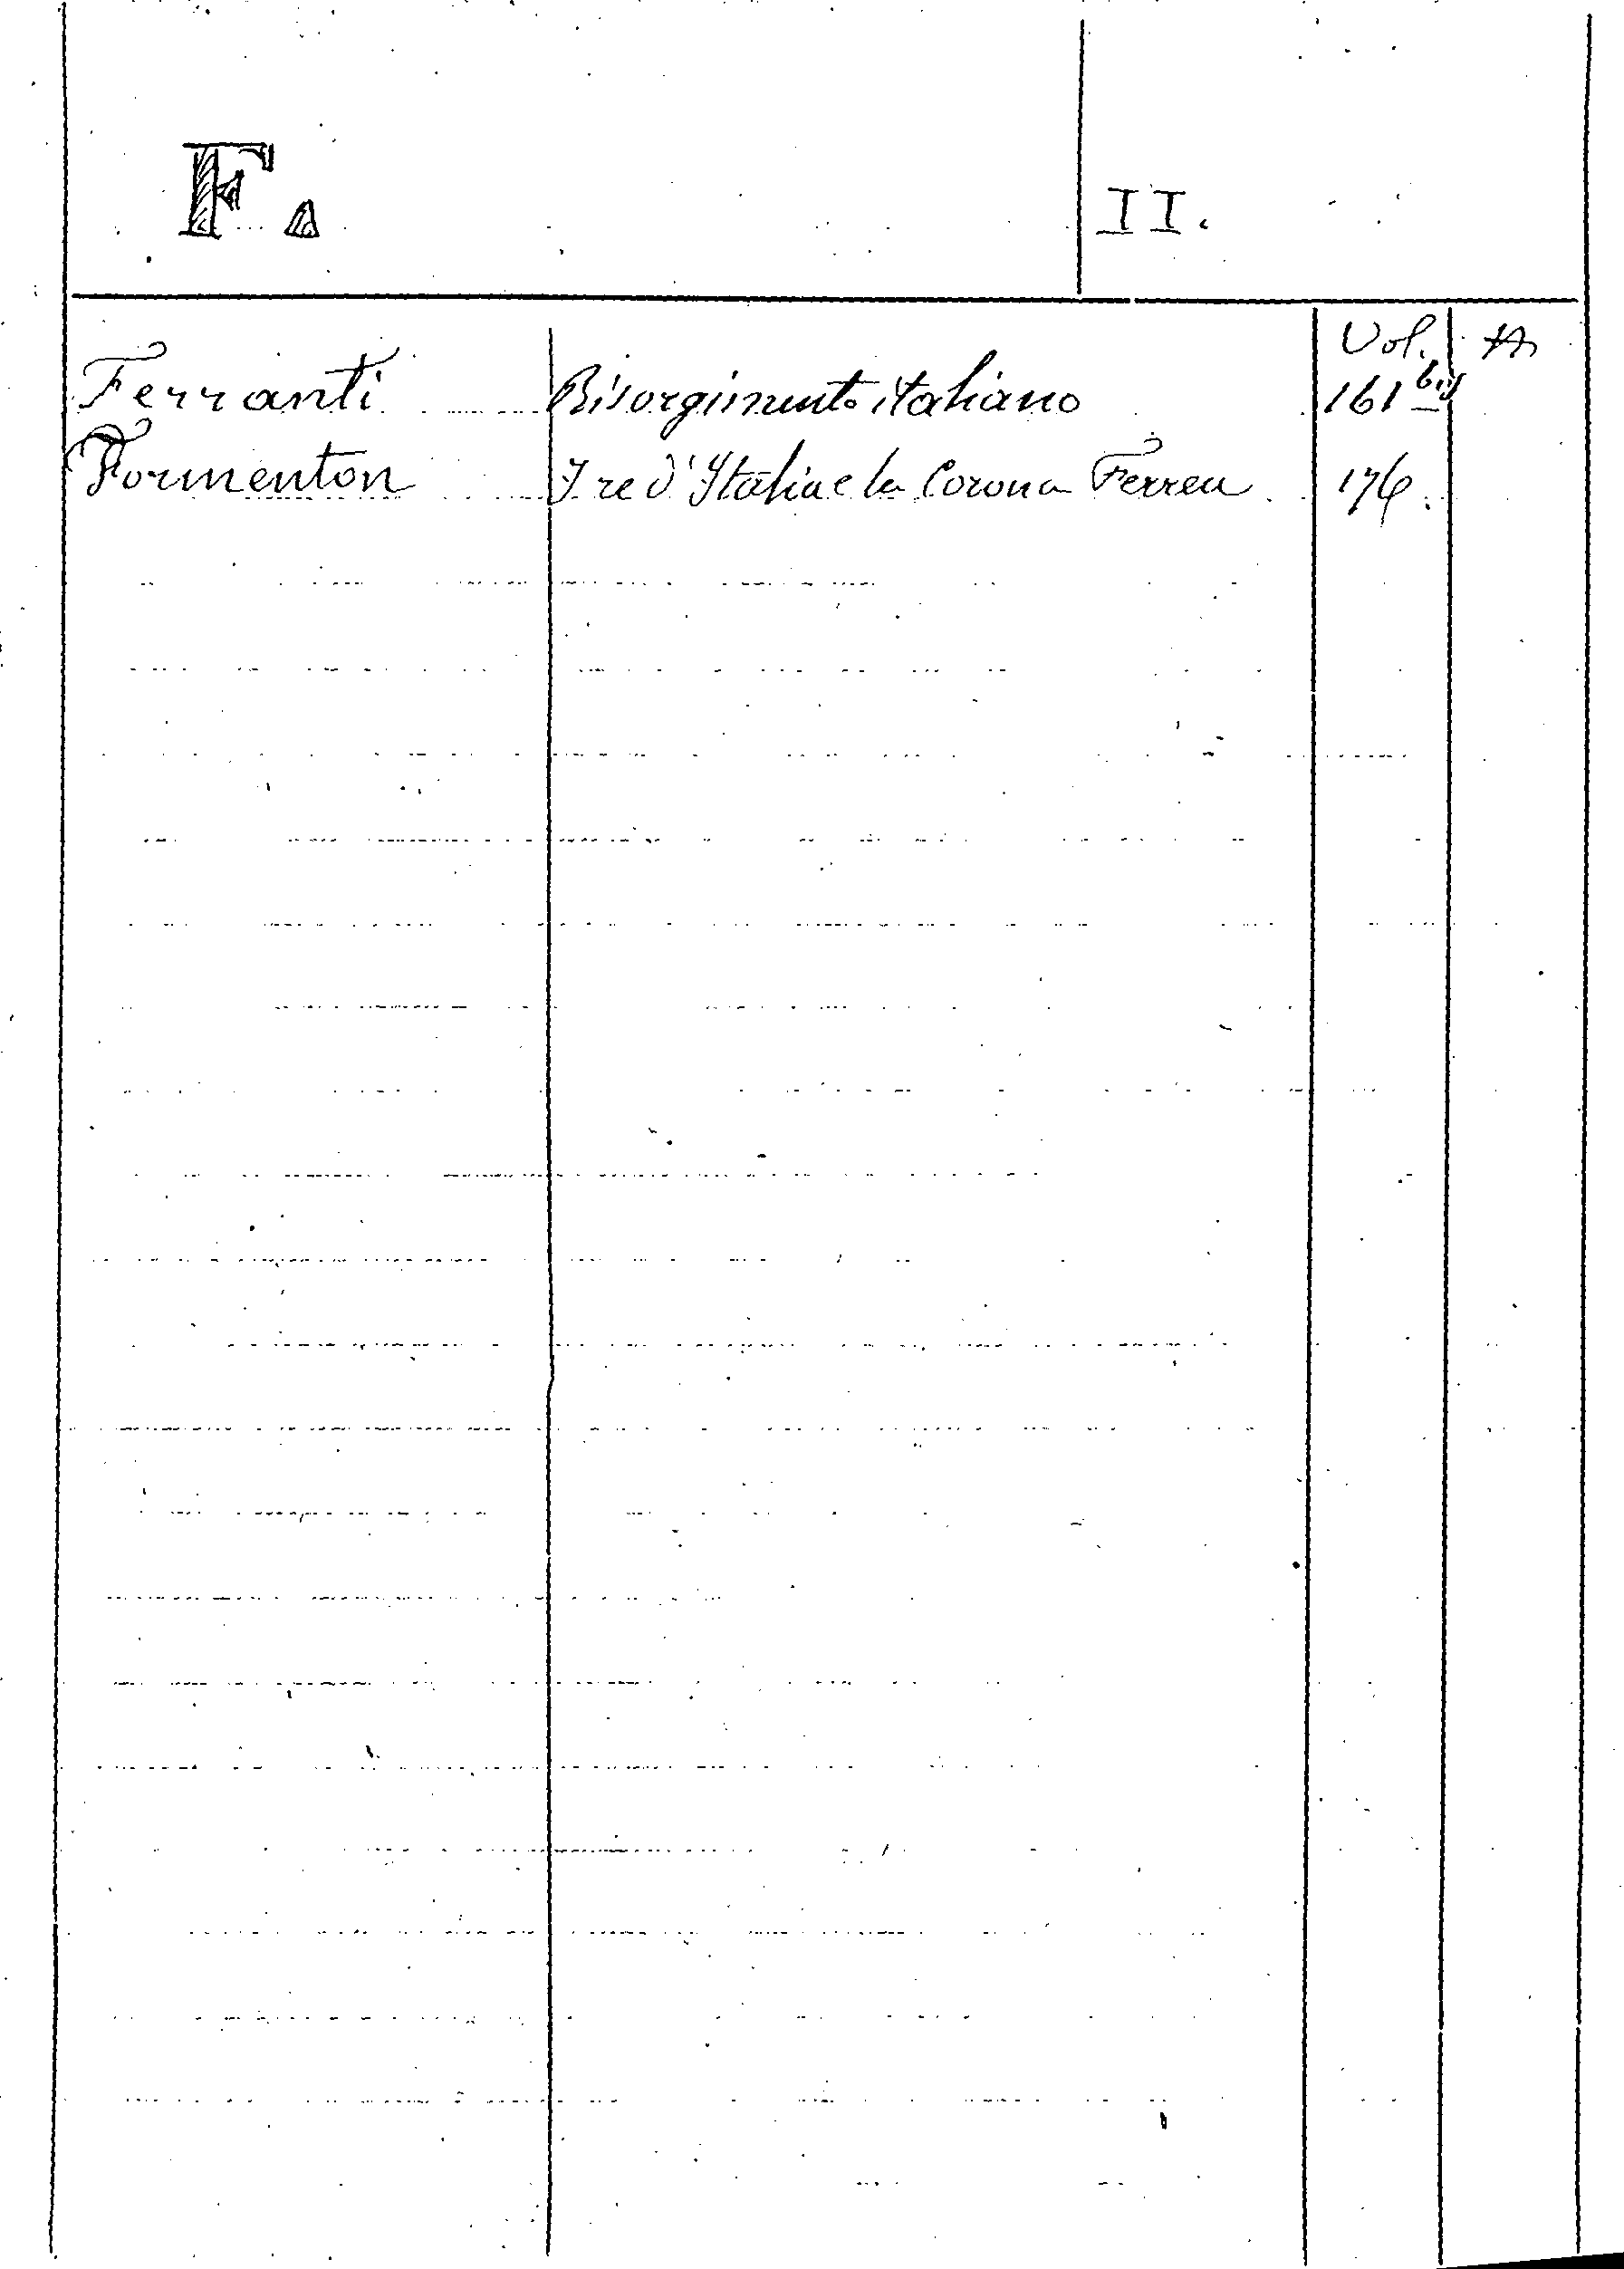 F. II.
Vol.
Ferranti Risorgimento italiano 161 bis
Formenton I re d'Italia e la Corona Ferrea 176.